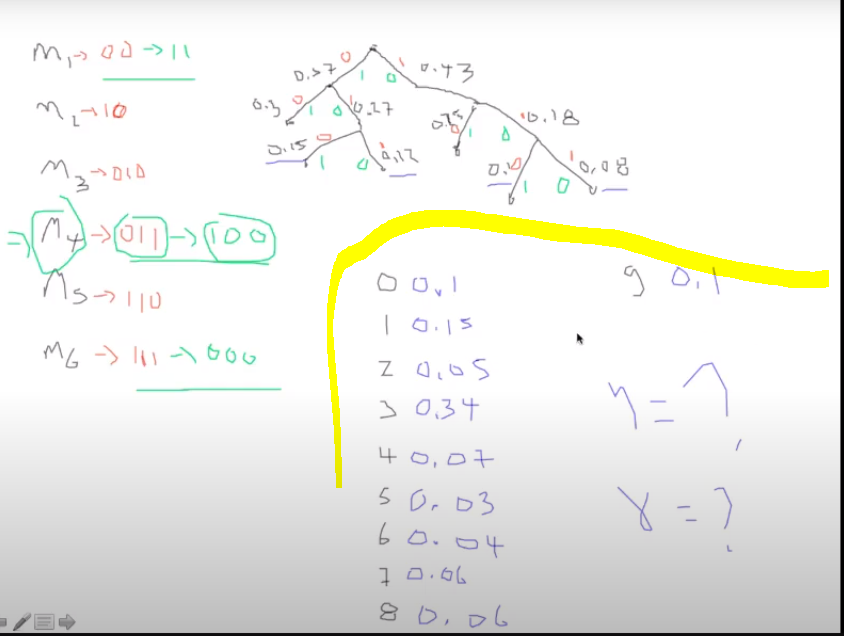 M1→ 00 → 11
M2→10
M3→010
⇒ M4 → 011 → 100
M5→110
M6 → 111 → 000
0 1
0.57 1 0 0.43
0.3 0 1 0 1 0.27 0 1 0 1 0.18
0.15 0 1 0 1 0.12 0 1 0 1 0.08
0 0.1
1 0.15
2 0.05
3 0.34
4 0.07
5 0.03
6 0.04
7 0.06
8 0.06
9 0.1
η = ?
γ = ?